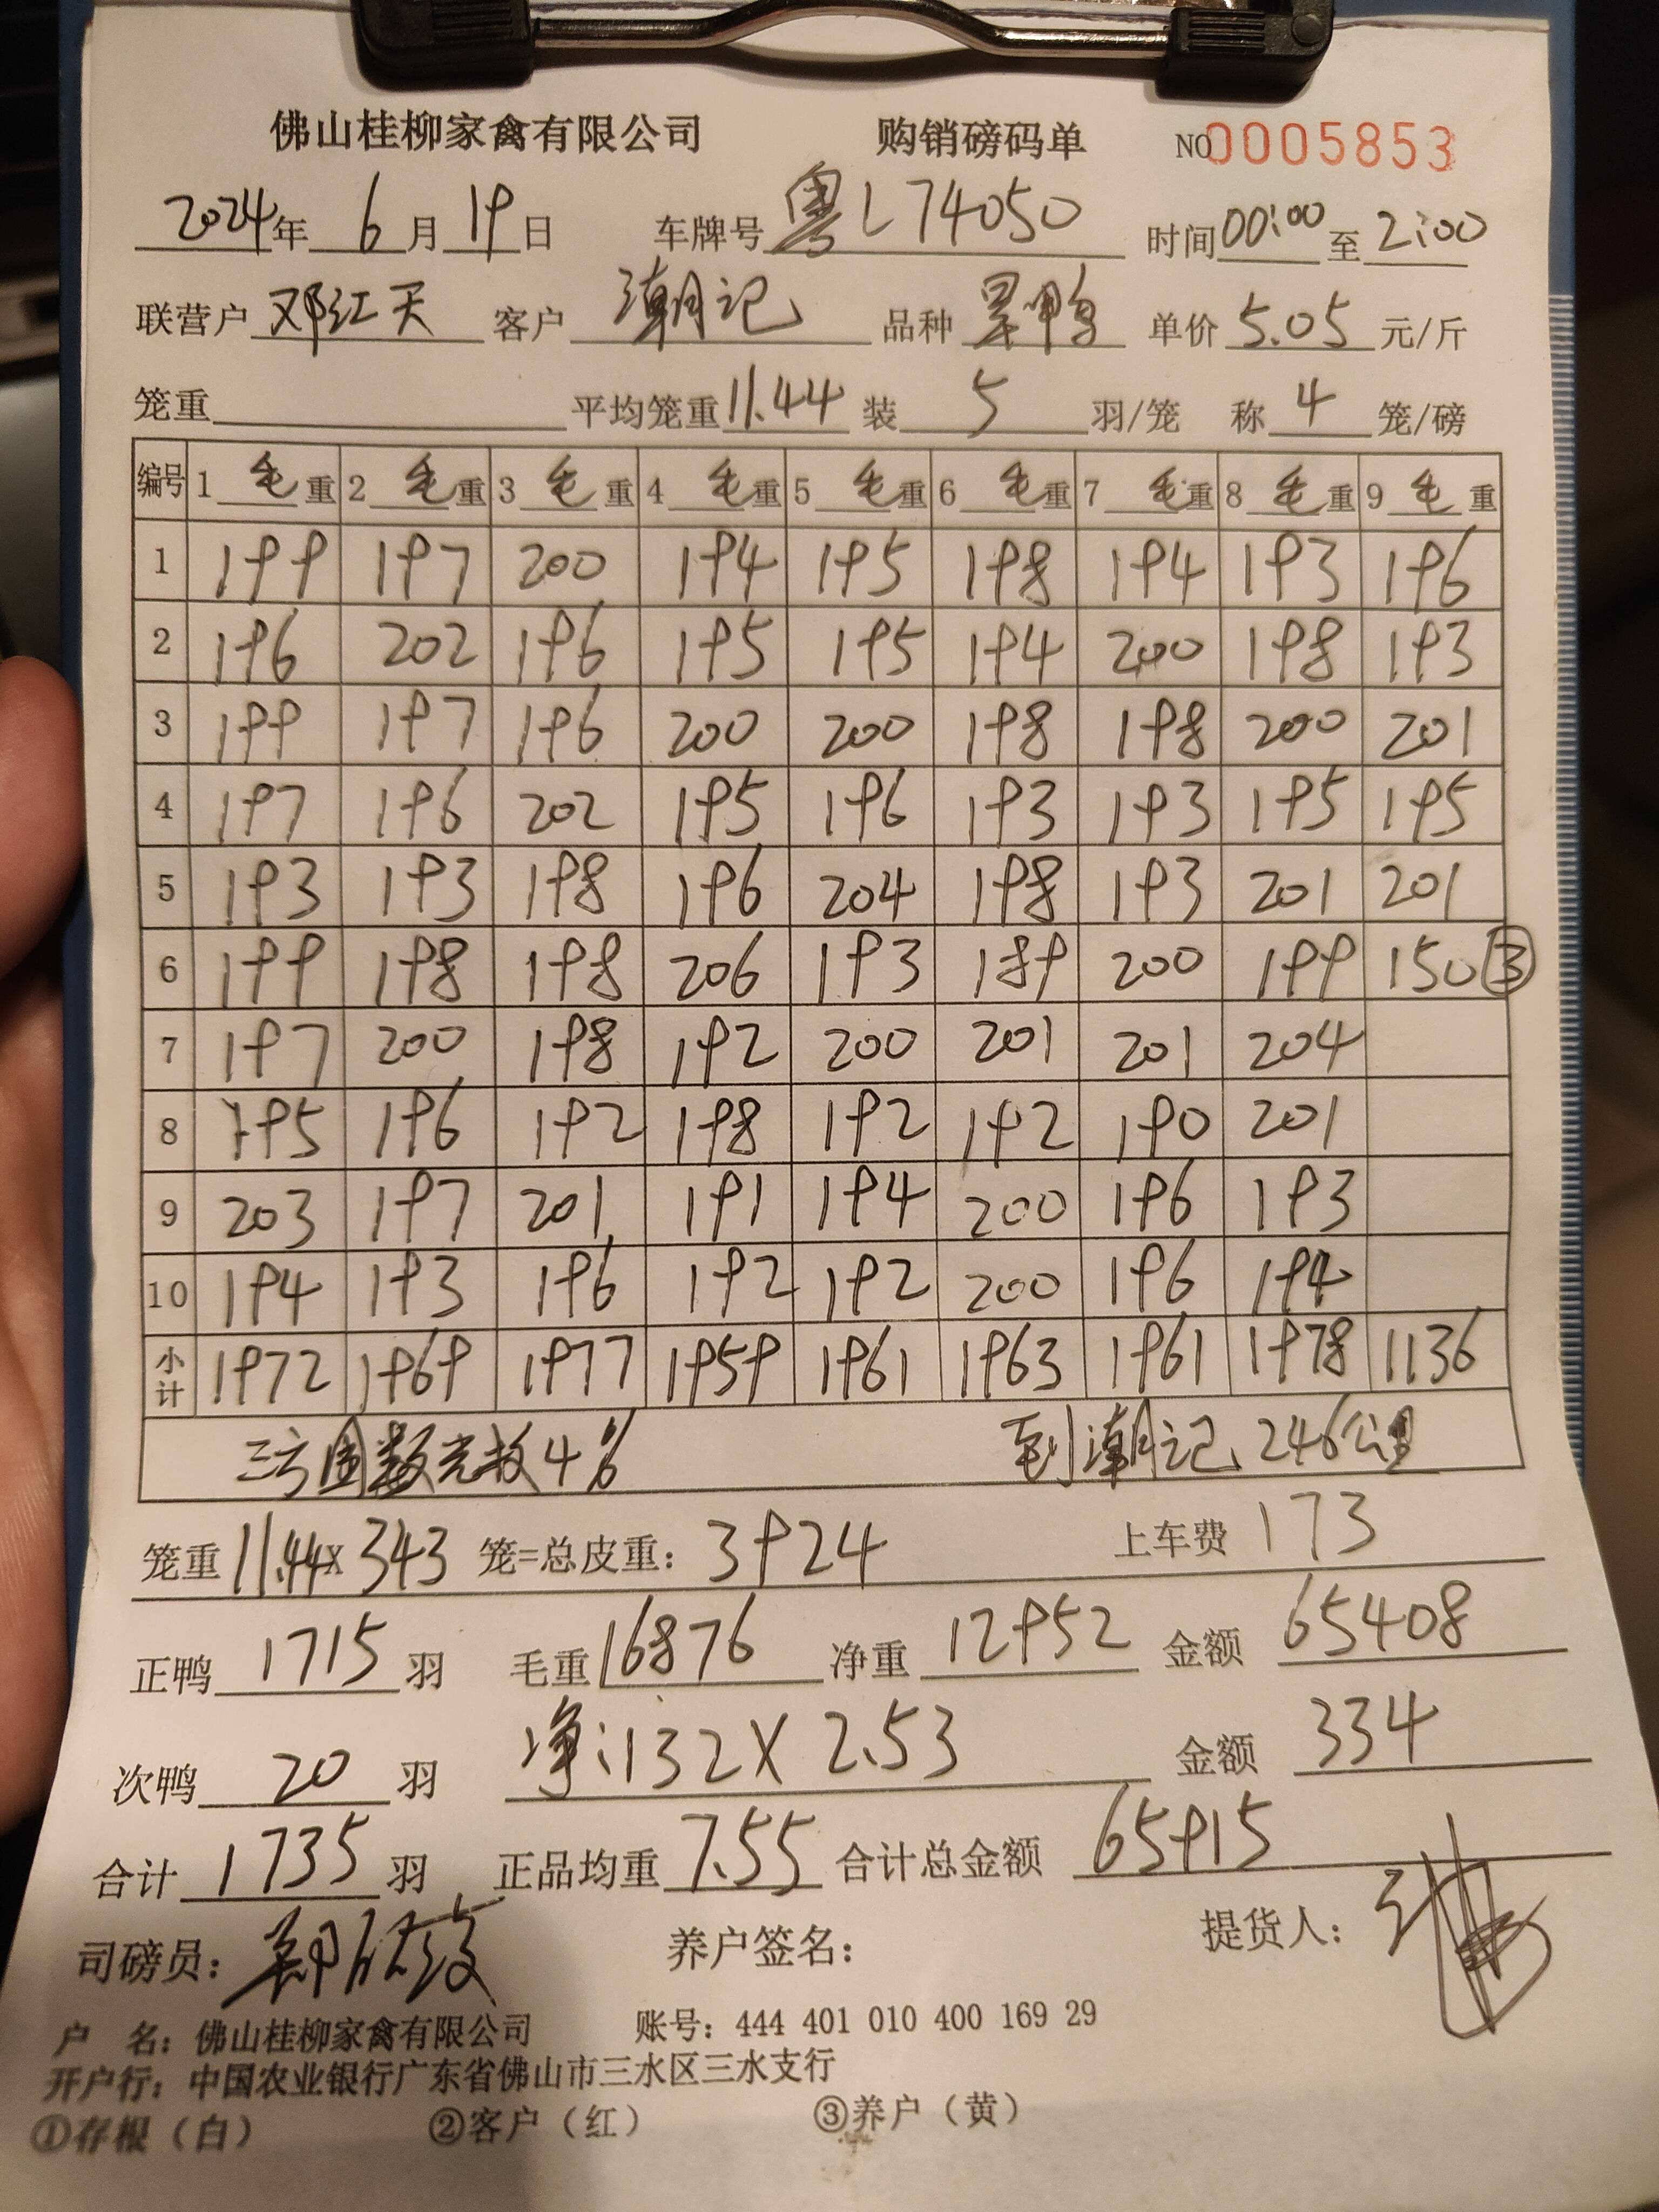 佛山桂柳家禽有限公司 购销磅码单 NO 0005853
2024年 6月 19日 车牌号 粤L74050 时间 00:00 至 2:00
联营户 邓红天 客户 潮记 品种 旱鸭 单价 5.05 元/斤
笼重 平均笼重 11.44 装 5 羽/笼 称 4 笼/磅
编号 1 毛重 2 毛重 3 毛重 4 毛重 5 毛重 6 毛重 7 毛重 8 毛重 9 毛重
1 199 197 200 194 195 198 194 193 196
2 196 202 196 195 195 194 200 198 193
3 199 197 196 200 200 198 198 200 201
4 197 196 202 195 196 193 193 195 195
5 193 193 198 196 204 198 193 201 201
6 199 198 198 206 193 189 200 199 150 ③
7 197 200 198 192 200 201 201 204
8 195 196 192 198 192 192 190 201
9 203 197 201 191 194 200 196 193
10 194 193 196 192 192 200 196 194
小计 1972 1969 1977 1959 1961 1963 1961 1978 1136
4% 到潮记246公里
笼重 11.44 x 343 笼=总皮重: 3924 上车费 173
正鸭 1715 羽 毛重 16876 净重 12952 金额 65408
次鸭 20 羽 净:132 X 2.53 金额 334
合计 1735 羽 正品均重 7.55 合计总金额 65915
司磅员: 养户签名: 提货人:
户 名: 佛山桂柳家禽有限公司 账号: 444 401 010 400 169 29
开户行: 中国农业银行广东省佛山市三水区三水支行
①存根（白） ②客户（红） ③养户（黄）